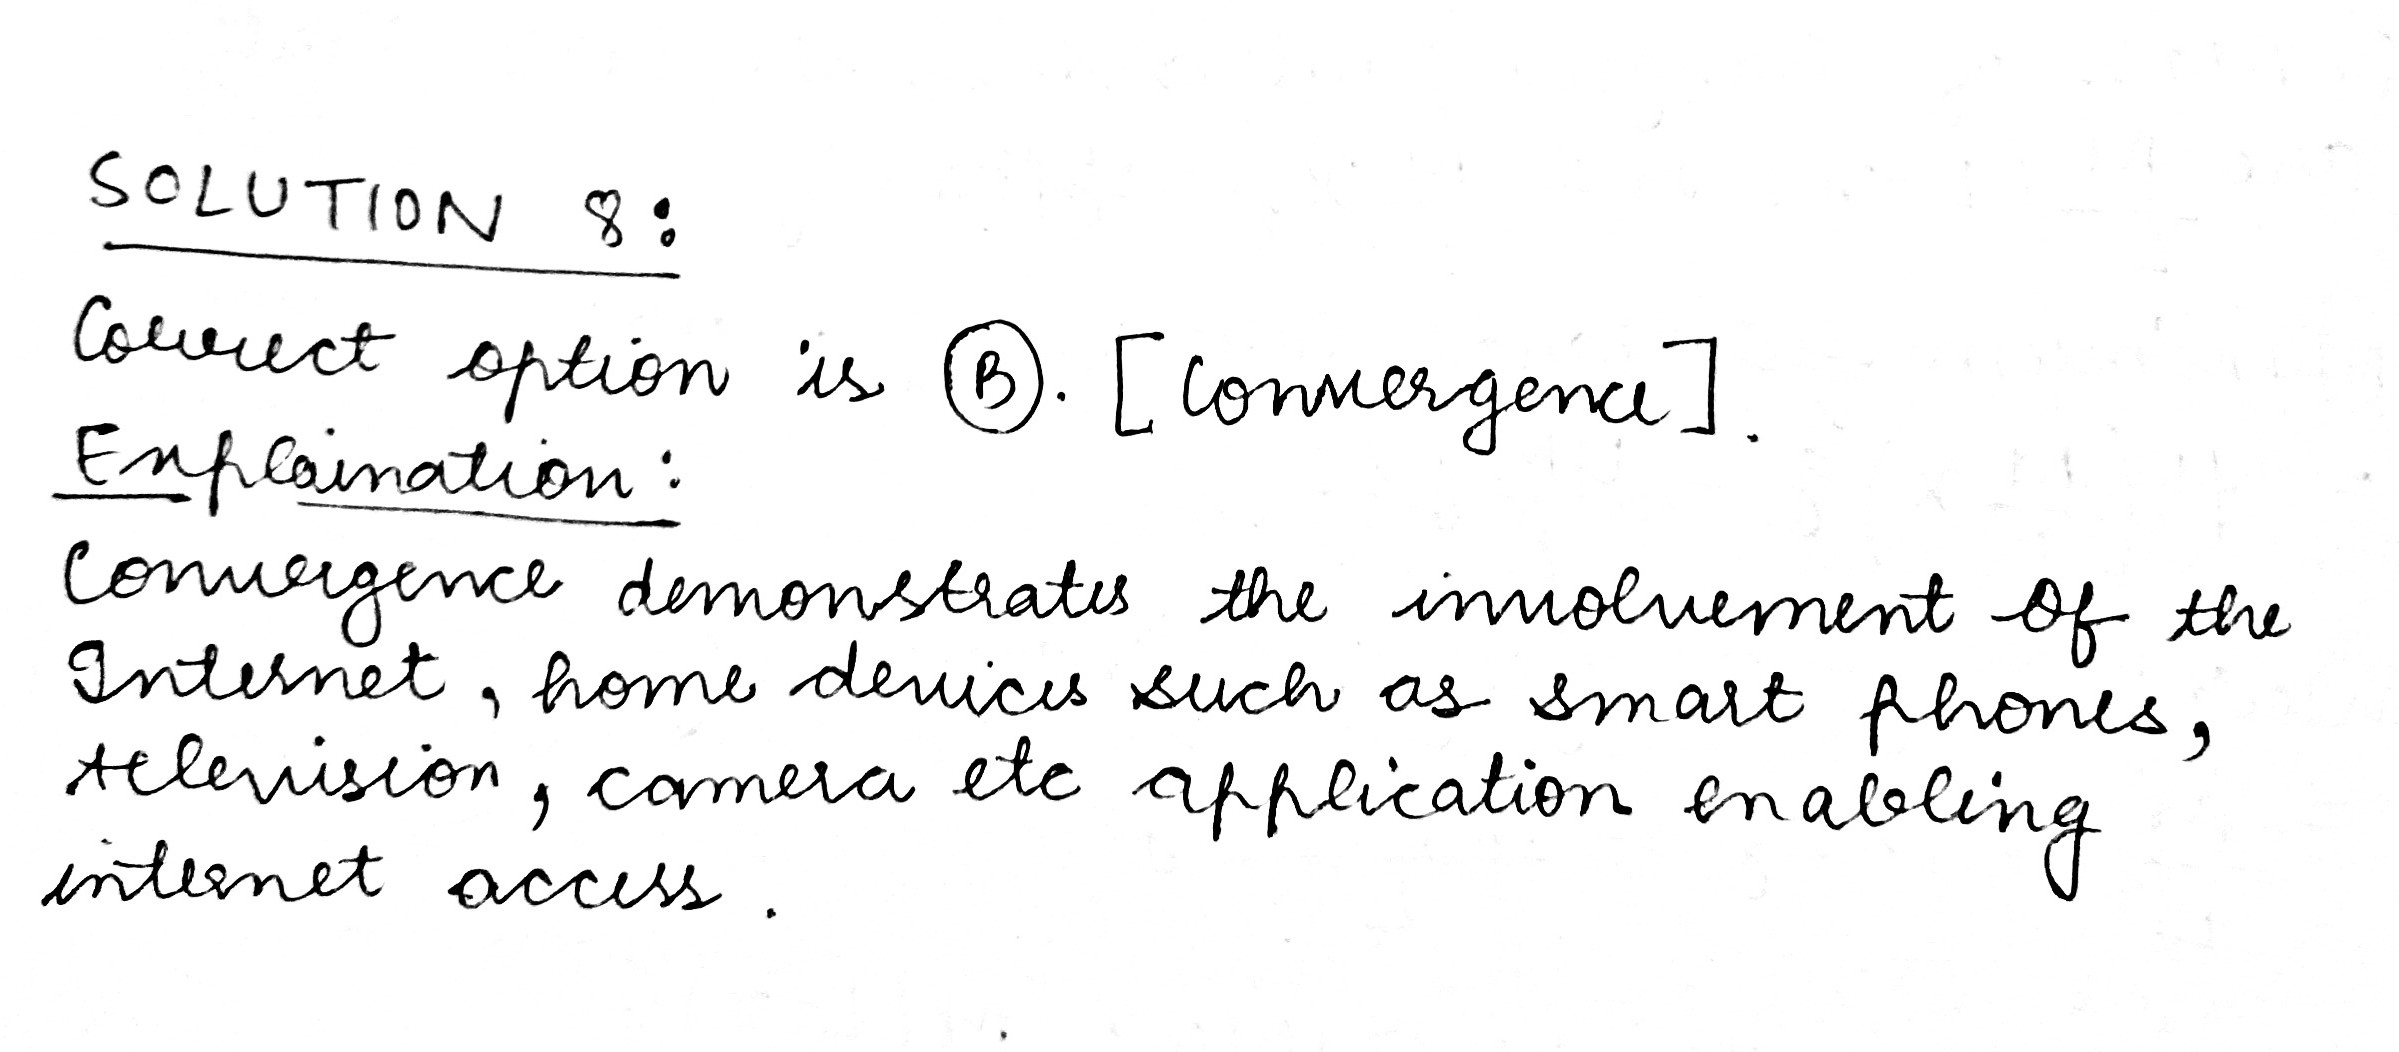 SOLUTION 8:
Correct option is B. [Convergence].
Explaination:
Convergence demonstrates the involvement of the
Internet, home devices such as smart phones,
television, camera etc application enabling
internet access.